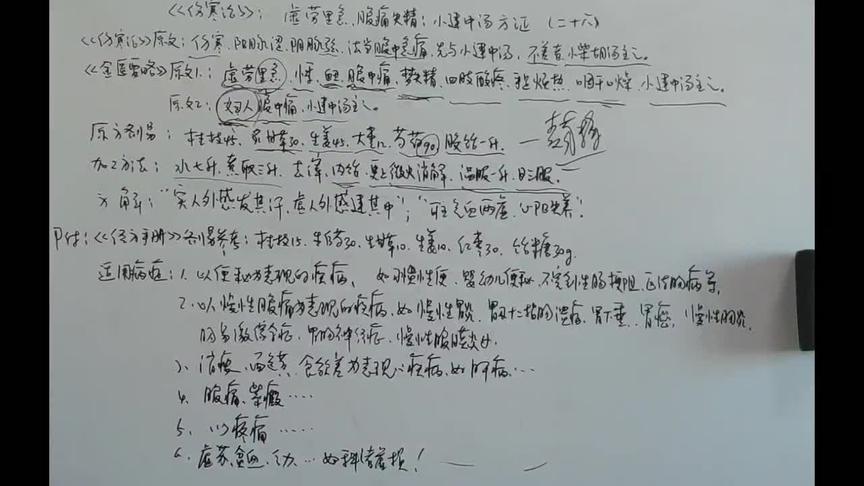 《伤寒论》：虚劳里急、腹痛失精：小建中汤方证（二十六）
《伤寒论》原文：伤寒，阳脉涩，阴脉弦，法当腹中急痛，先与小建中汤，不差者，小柴胡汤主之。
《金匮要略》原文1：虚劳里急，悸，衄，腹中痛，梦失精，四肢酸疼，手足烦热，咽干口燥，小建中汤主之。
原文2：妇人腹中痛，小建中汤主之。
原方剂量：桂枝45、炙甘草30、生姜45、大枣12、芍药90、胶饴一升。
加工方法：水七升，煮取三升，去滓，内饴，更上微火消解，温服一升，日三服。
方解："实人外感发其汗，虚人外感建其中"；"
附：《经方手册》剂量参考：桂枝15、芍药30、生姜10、红枣30、饴糖30g。
适用病症：1. 以便秘为表现的疾病，如习惯性便、婴幼儿便秘、不完全性肠梗阻
2. 以慢性腹痛为表现的疾病，如慢性胃炎、胃及十二指肠溃疡、胃下垂、胃癌、慢性肠炎、
肠易激综合症、胃肠神经症、慢性腹膜炎
3. 消瘦、食欲差为表现的疾病，如肝病…
4. 腹痛、紫癜……
5. 以疼痛……
6. 虚劳